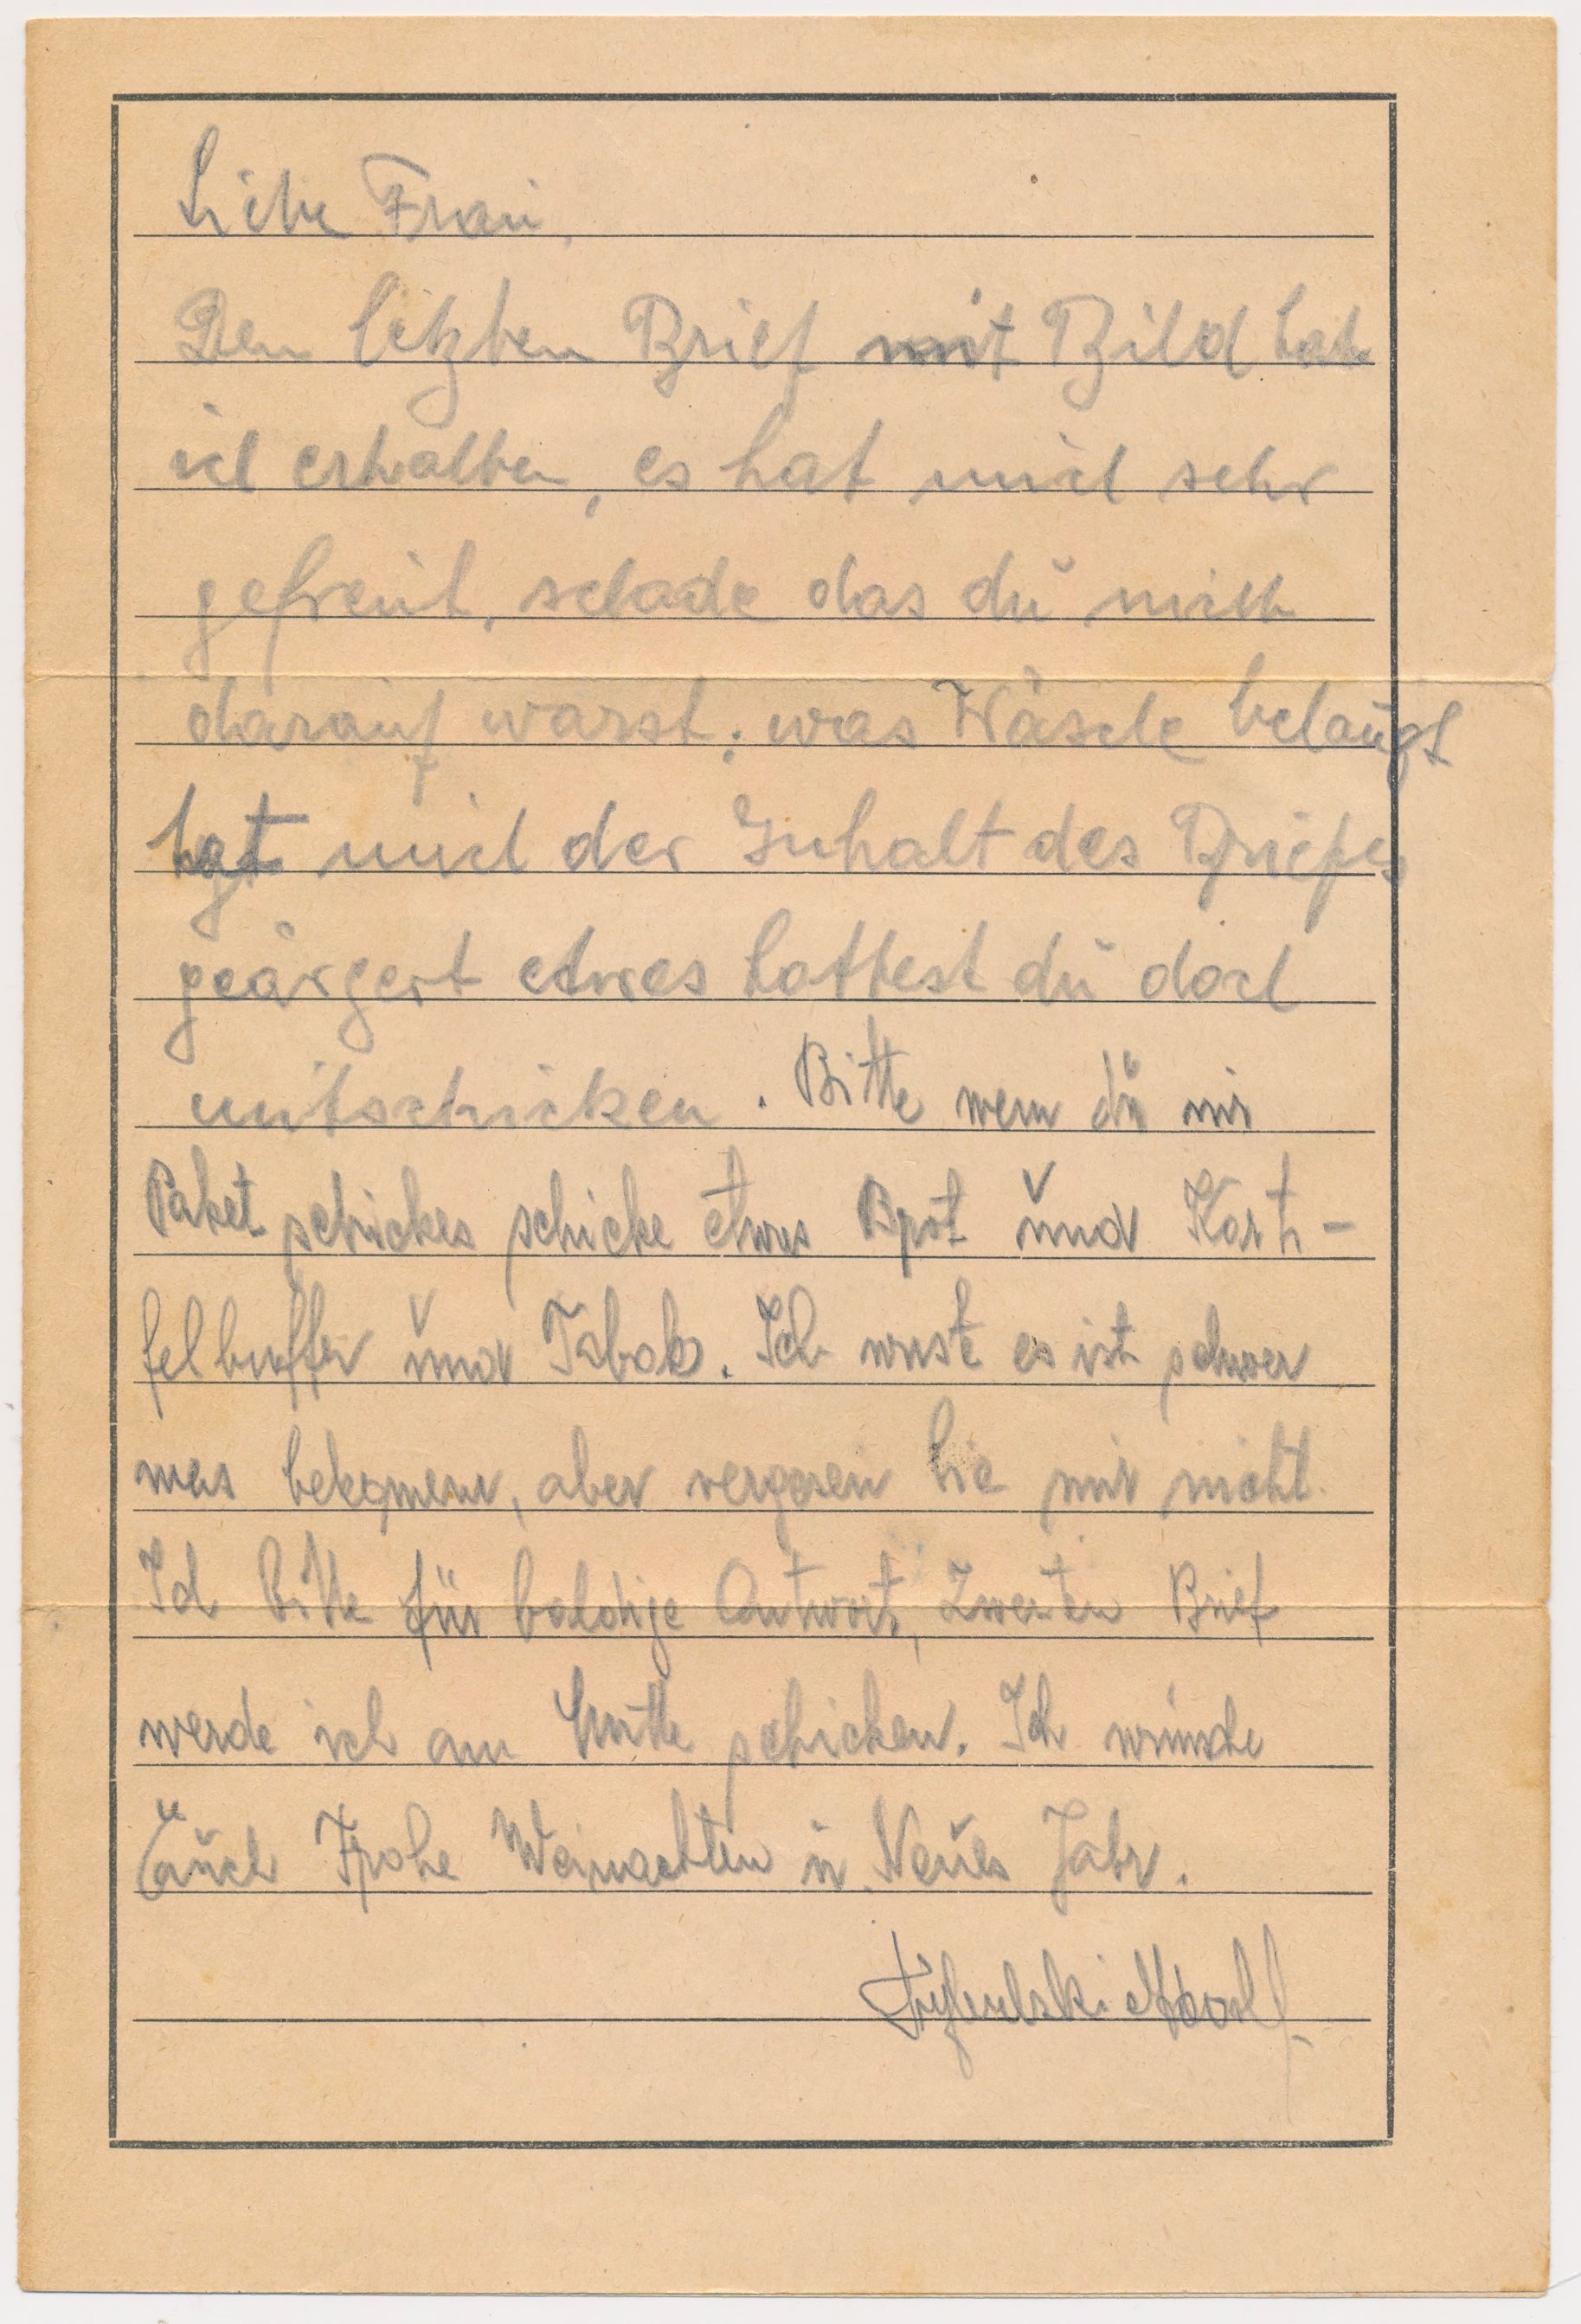 Liebe Frau,
Den letzten Brief mit Bild habe
ich erhalten, es hat mich sehr
gefreut, schade das du nicht
darauf warst; was Wäsche belangt
hat mich der Inhalt des Briefes
geärgert etwas hattest du doch
mitschicken. Bitte wenn du mir
Paket schickes schicke etwas Brot und Kart-
felbuffer und Tabak. Ich wuste es ist schwer
was bekomen, aber vergesen Sie mir nicht.
Ich bitte für baldige Antwort, Zweiten Brief
werde ich an schicken. Ich wünsche
Euch Frohe Weinachten u. Neues Jahr.